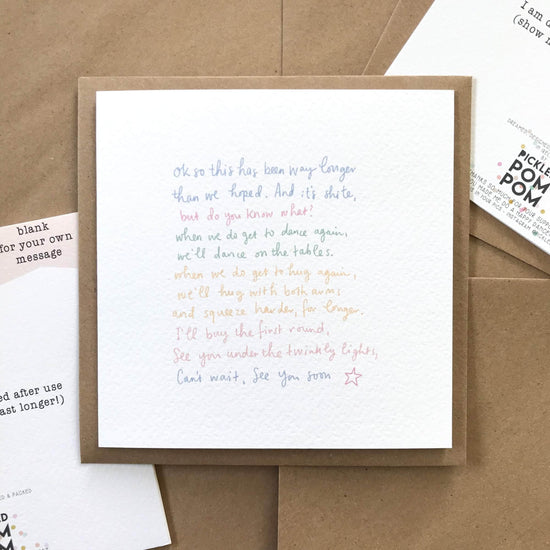 Ok so this has been way longer
than we hoped. And it's shite,
but do you know what?
when we do get to dance again,
we'll dance on the tables.
when we do get to hug again,
we'll hug with both arms
and squeeze harder, for longer.
I'll buy the first round,
See you under the twinkly lights,
Can't wait, See you soon
blank
for your own
message
ed after use
ast longer!)
& PACKED
I am d
(show m
PICKLE
POM
POM